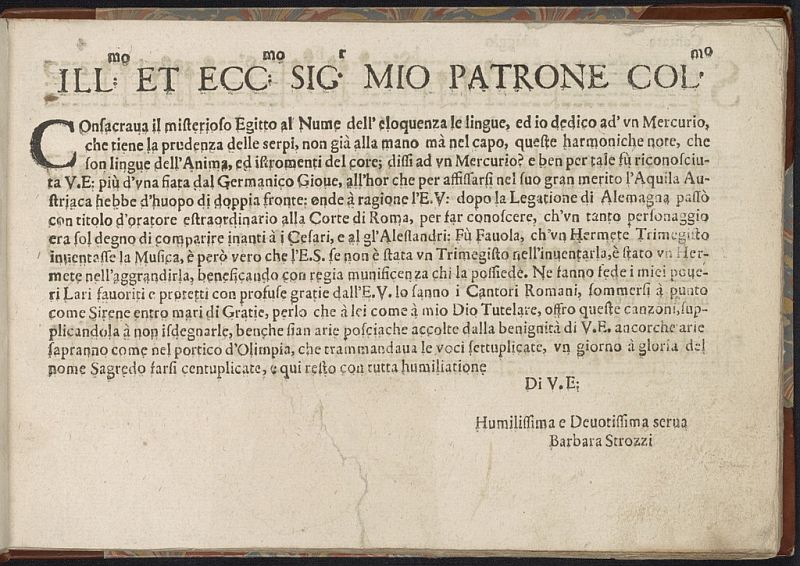 ILL:mo ET ECC:mo SIG:r MIO PATRONE COL:mo
COnſacraua il miſterioſo Egitto al Nume dell' eloquenza le lingue, ed io dedico ad' vn Mercurio,
che tiene la prudenza delle serpi, non già alla mano mà nel capo, queſte harmoniche note, che
ſon lingue dell'Anima, ed iſtromenti del core; diſſi ad vn Mercurio? e ben per tale fù riconoſciu-
ta V.E: più d'vna fiata dal Germanico Gioue, all'hor che per affiſſarſi nel ſuo gran merito l'Aquila Au-
ſtriaca hebbe d'huopo di doppia fronte: onde à ragione l'E.V: dopo la Legatione di Alemagna paſsò
con titolo d'oratore eſtraordinario alla Corte di Roma, per far conoſcere, ch'vn tanto perſonaggio
era ſol degno di comparire inanti à i Ceſari, e al gl'Aleſſandri: Fù Fauola, ch'vn Hermete Trimegiſto
inuentaſſe la Muſica, è però vero che l'E.S. ſe non è ſtata vn Trimegiſto nell'inuentarla, è ſtato vn Her-
mete nell'aggrandirla, beneficando con regia munificenza chi la poſſiede. Ne fanno fede i miei poue-
ri Lari fauoriti e protetti con profuſe gratie dall'E.V. lo ſanno i Cantori Romani, ſommerſi à punto
come Sirene entro mari di Gratie, perlo che à lei come à mio Dio Tutelare, offro queſte canzoni, ſup-
plicandola à non iſdegnarle, benche ſian arie poſciache accolte dalla benignità di V.E. ancorche arie
ſapranno come nel portico d'Olimpia, che trammandaua le voci ſettuplicate, vn giorno à gloria del
nome Sagredo farſi centuplicate, e qui reſto con tutta humiliatione
Di V.E;
Humiliſſima e Deuotiſſima serua
Barbara Strozzi